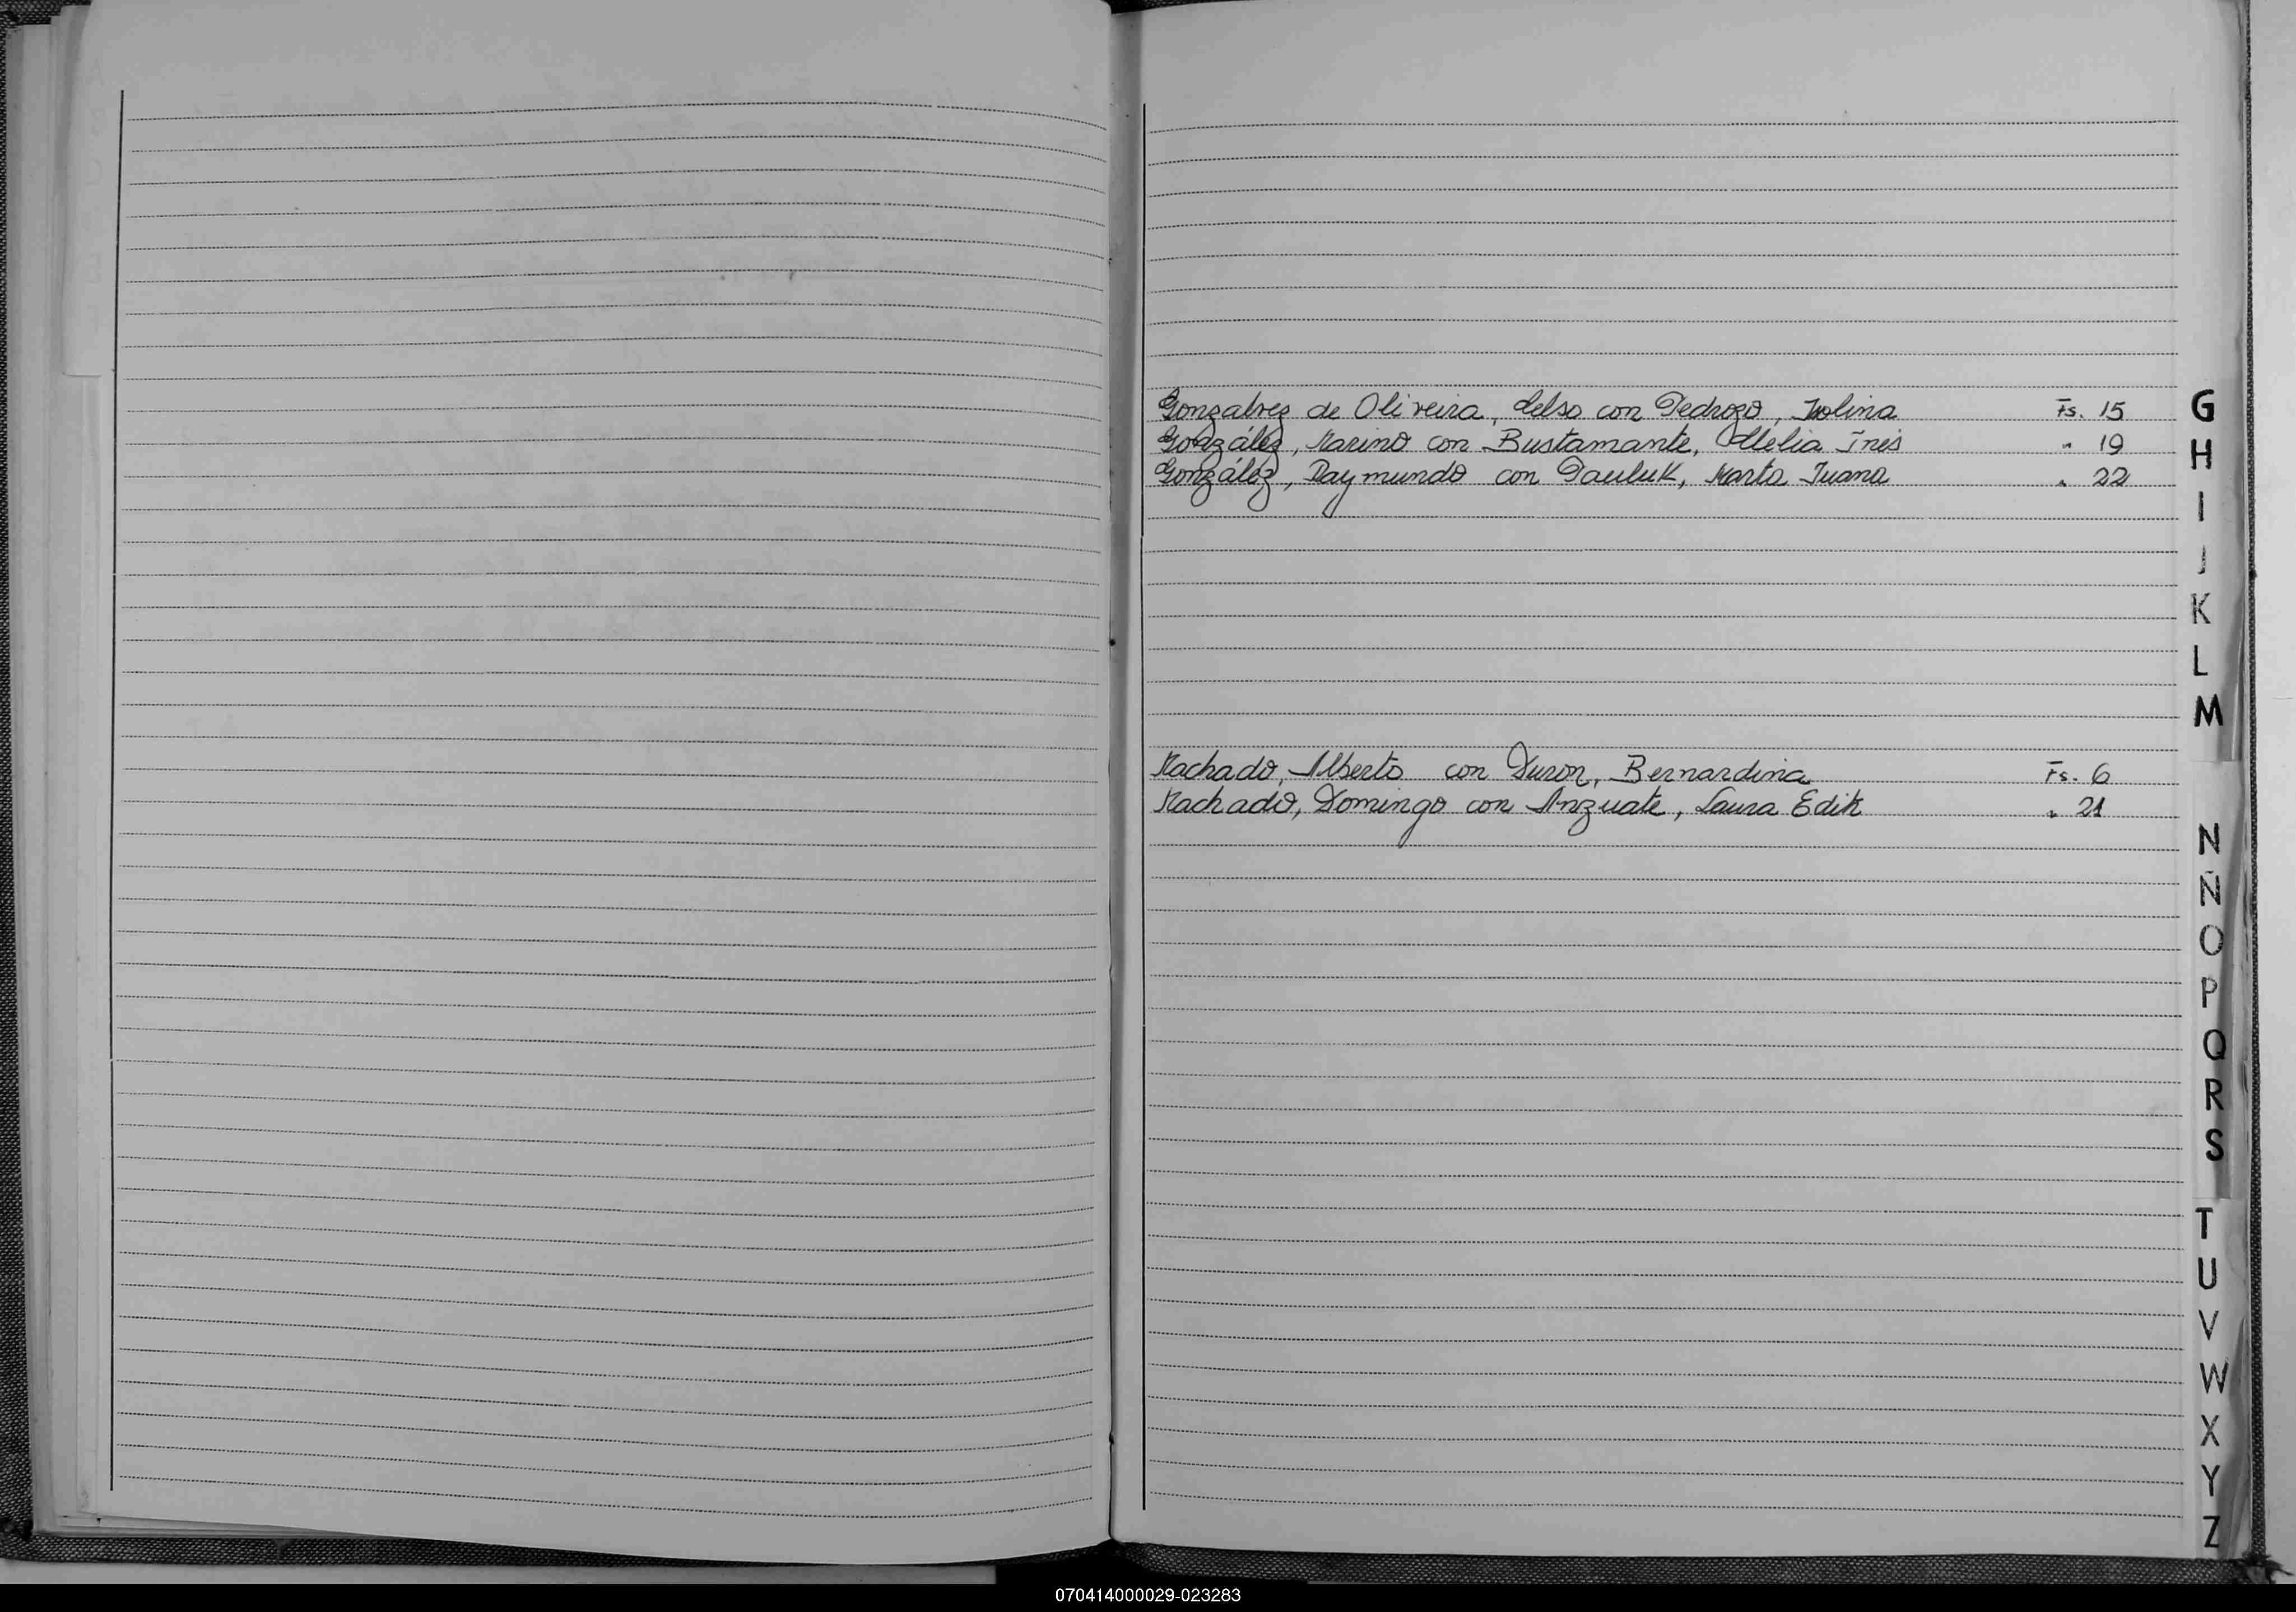 Gonzalvez de Oliveira, Celso con Pedrozo, Isolina Fs. 15
González, Marino con Bustamante, Clelia Inés " 19
González, Raymundo con Pauluk, Marta Juana " 22
Machado, Alberto con Duron, Bernardina Fs. 6
Machado, Domingo con Anzuate, Laura Edit " 21
G
H
I
J
K
L
M
N
Ñ
O
P
Q
R
S
T
U
V
W
X
Y
Z
070414000029-023283